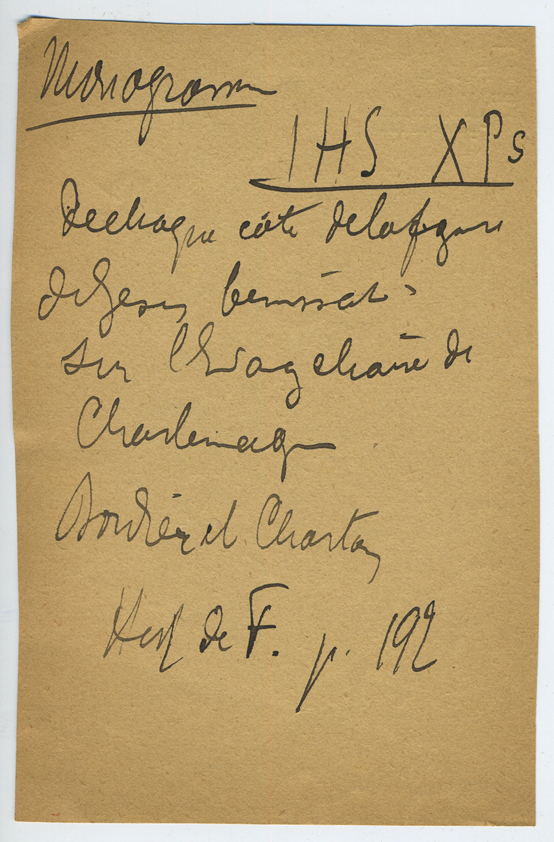 Monogramme
IHS XPS
De chaque côté de la figure
de Jesus benissant
sur l'Evangeliaire de
Charlemagne
Bordier et Charton
Hist de F. p. 192